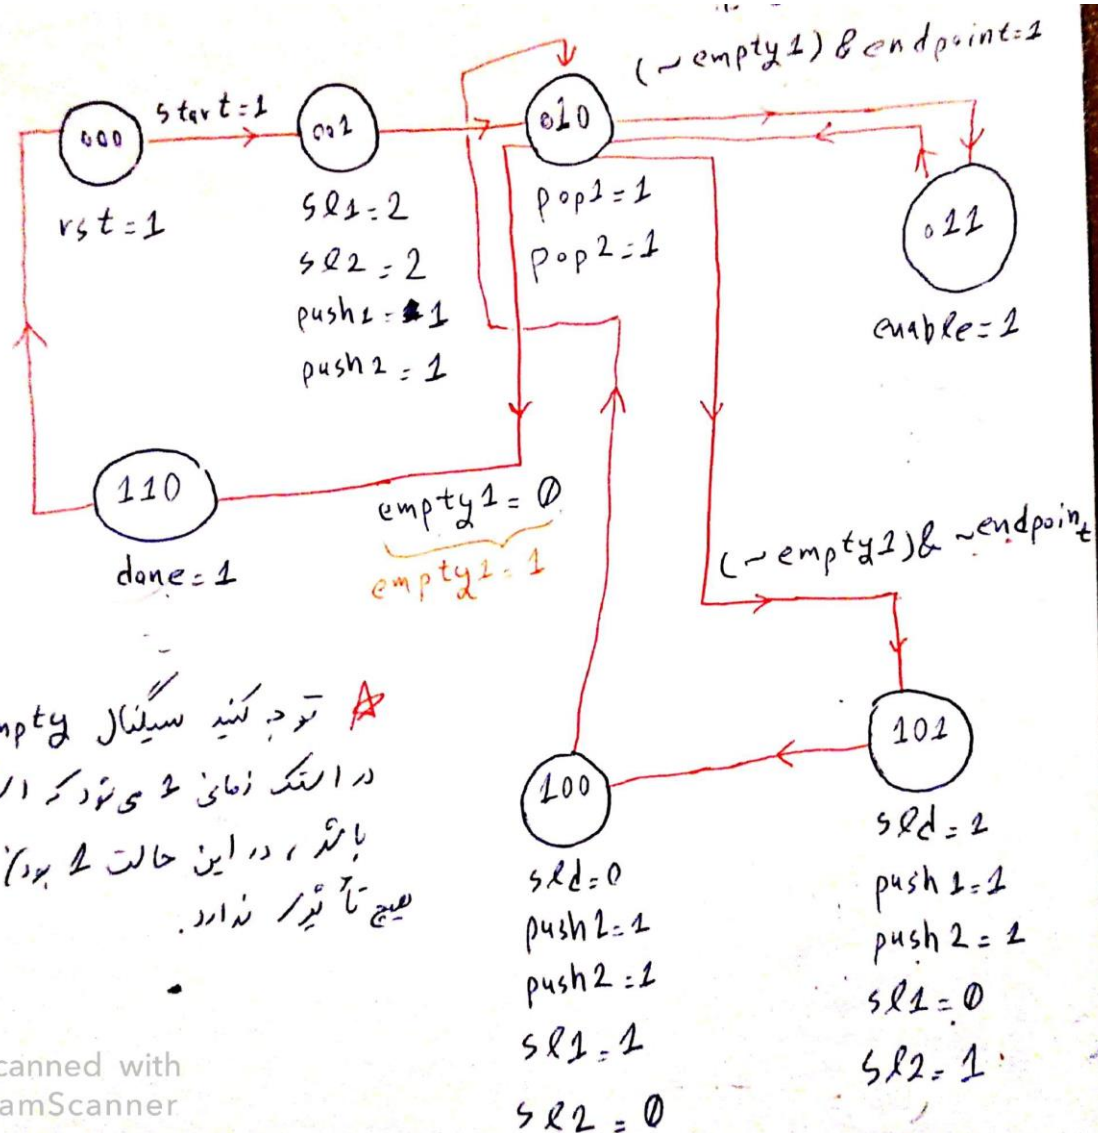 (~empty1) & endpoint=1
start=1
000
001
010
011
rst=1
sl1=2
sl2=2
push1=1
push2=1
pop1=1
pop2=1
enable=1
110
done=1
empty1=0
empty1=1
(~empty1) & ~endpoint
101
sld=1
push1=1
push2=1
sl1=0
sl2=1
100
sld=0
push1=1
push2=1
sl1=1
sl2=0
توجه کنید سیگنال mpty
در استک زمانی 1 می‌شود که
باشد، در این حالت 1
هیچ تأثیری ندارد.
canned with
amScanner